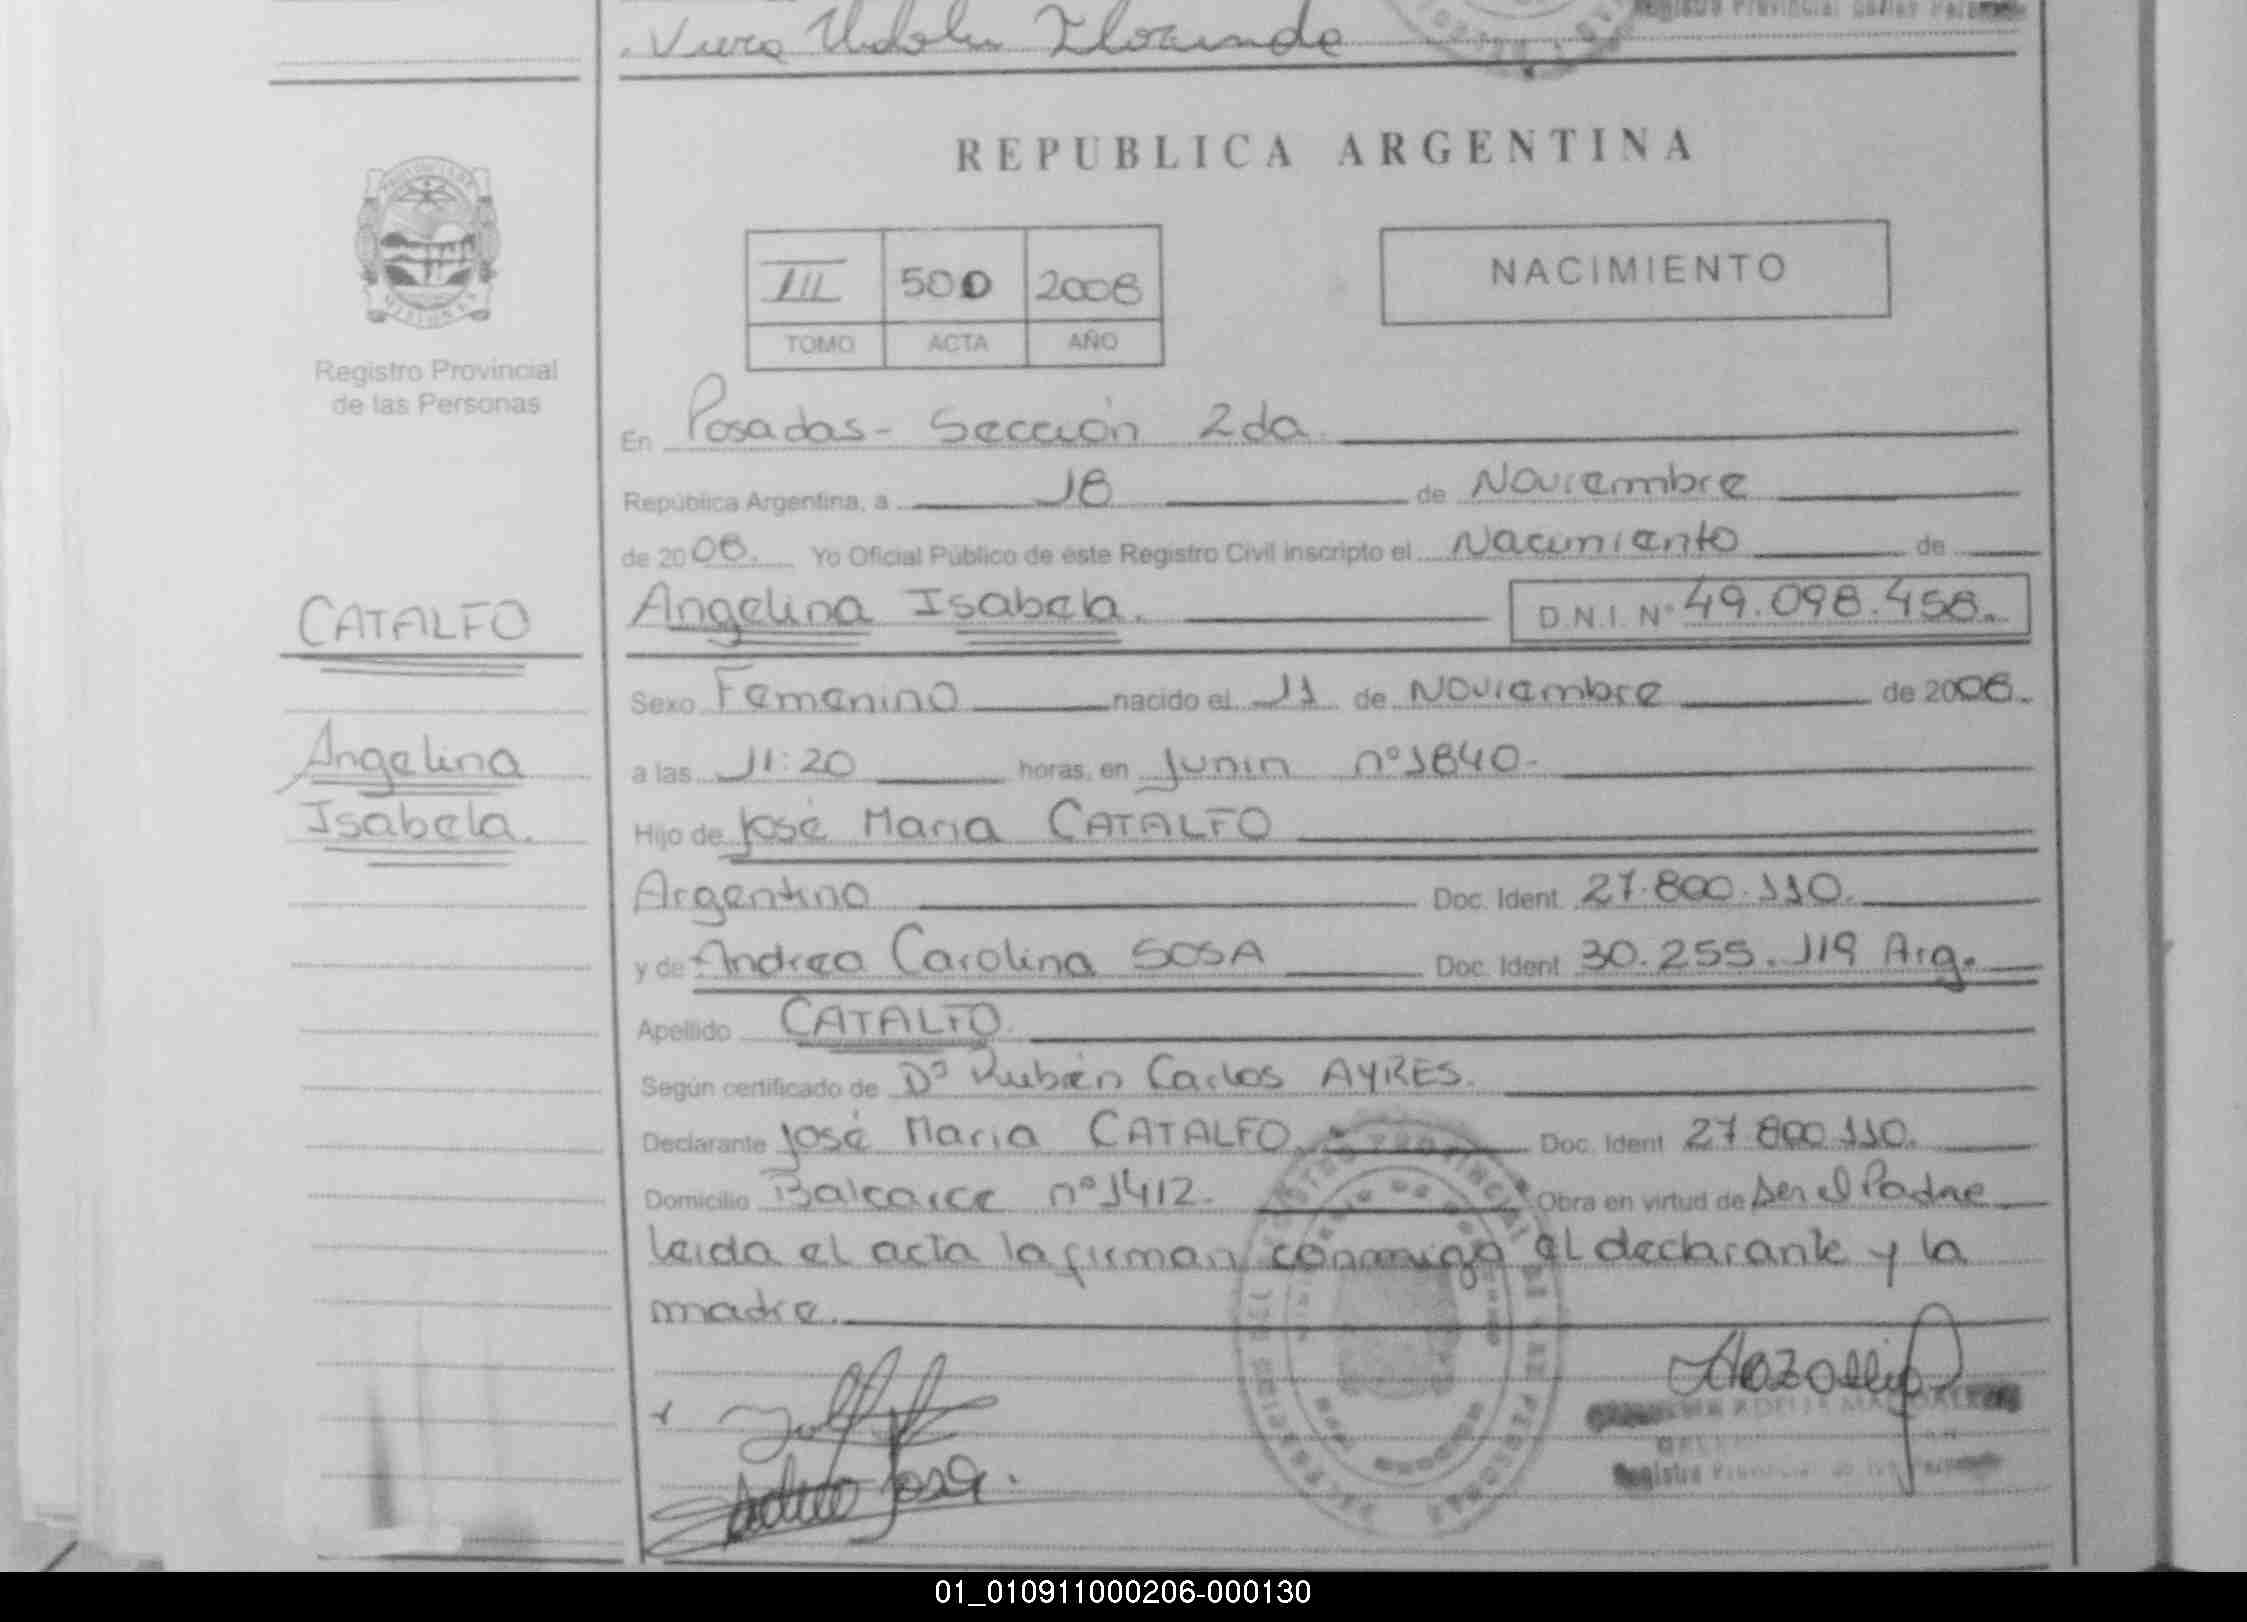 Registro Provincial de las Personas
REPUBLICA ARGENTINA
III 500 2008
TOMO ACTA AÑO
NACIMIENTO
Registro Provincial
de las Personas
En Posadas - Sección 2da.
República Argentina, a 18 de Noviembre
de 2008. Yo Oficial Público de este Registro Civil inscripto el Nacimiento de
CATALFO
Angelina Isabela. D.N.I. Nº 49.098.458.
Sexo Femenino nacido el 11 de Noviembre de 2008.
Angelina
Isabela.
a las 11:20 horas, en Junin nº 1840.
Hijo de José Maria CATALFO
Argentino Doc. Ident. 27.800.110.
y de Andrea Carolina SOSA Doc. Ident. 30.255.119 Arg.
Apellido CATALFO.
Según certificado de Dº Rubén Carlos AYRES.
Declarante José Maria CATALFO. Doc. Ident. 27.800.110.
Domicilio Balcarce nº 1412. Obra en virtud de ser el Padre
leida el acta la firman conmigo el declarante y la
madre.
Registro Provincial de las Personas
01_010911000206-000130